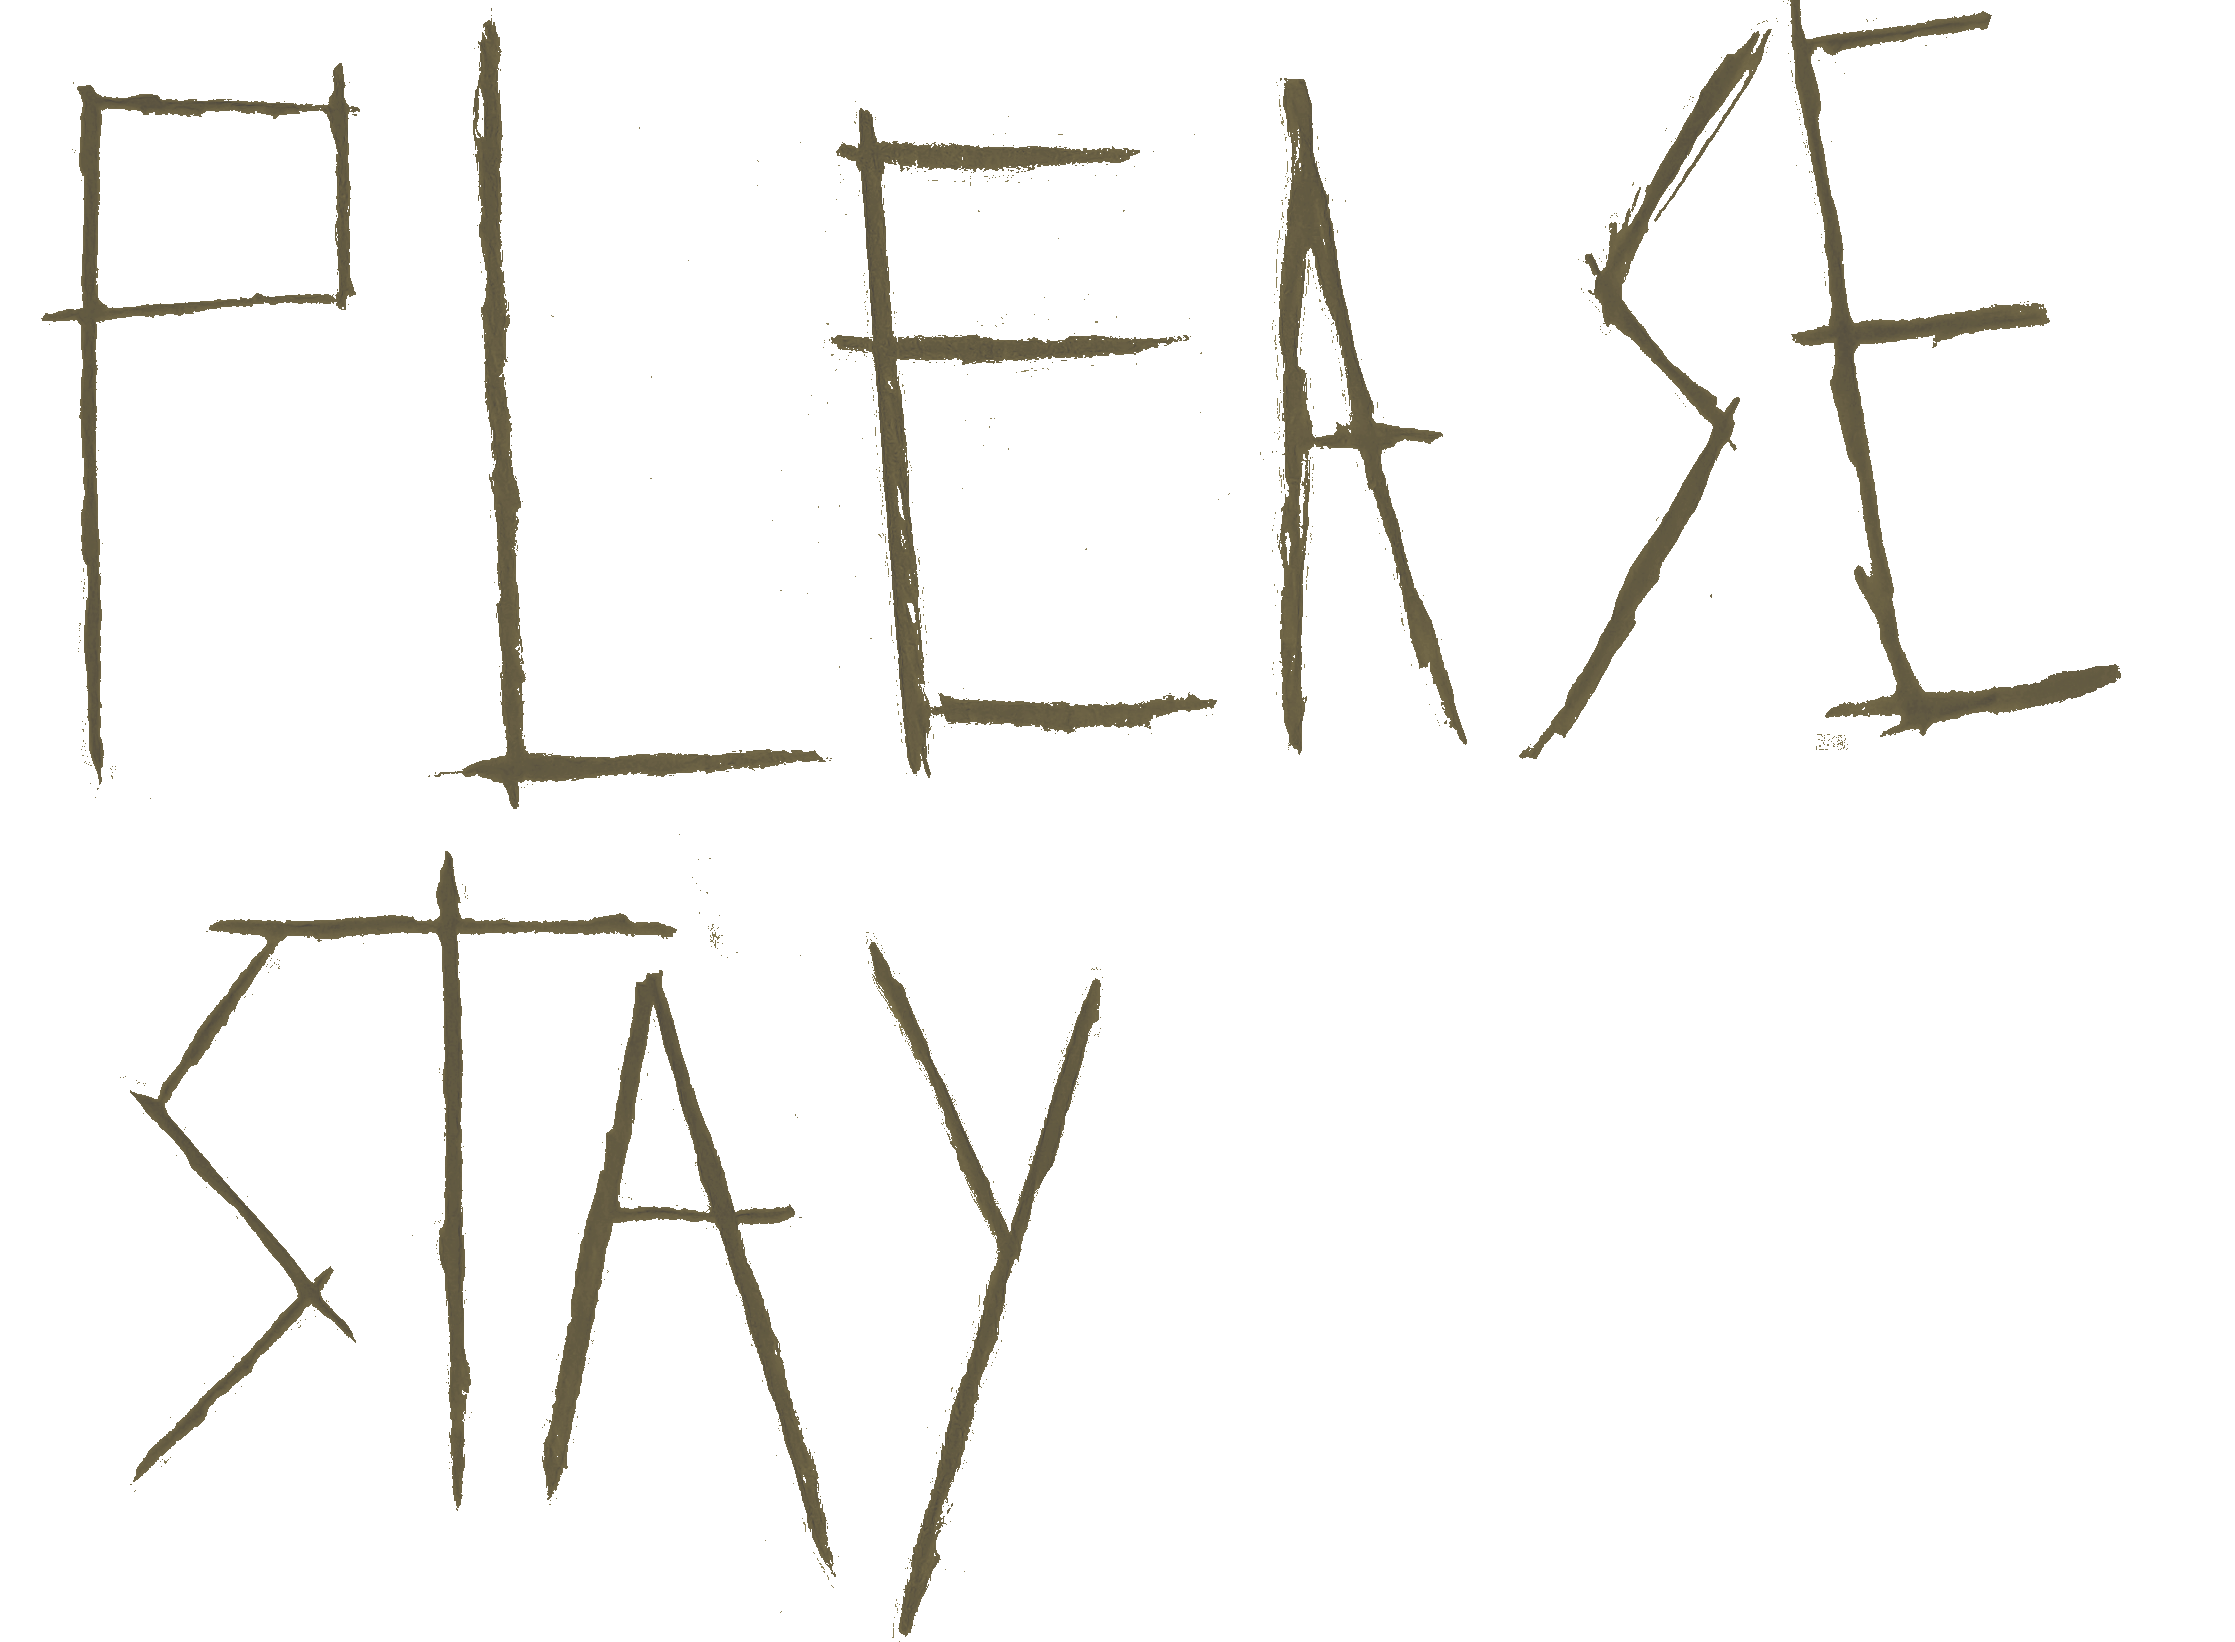 PLEASE
STAY